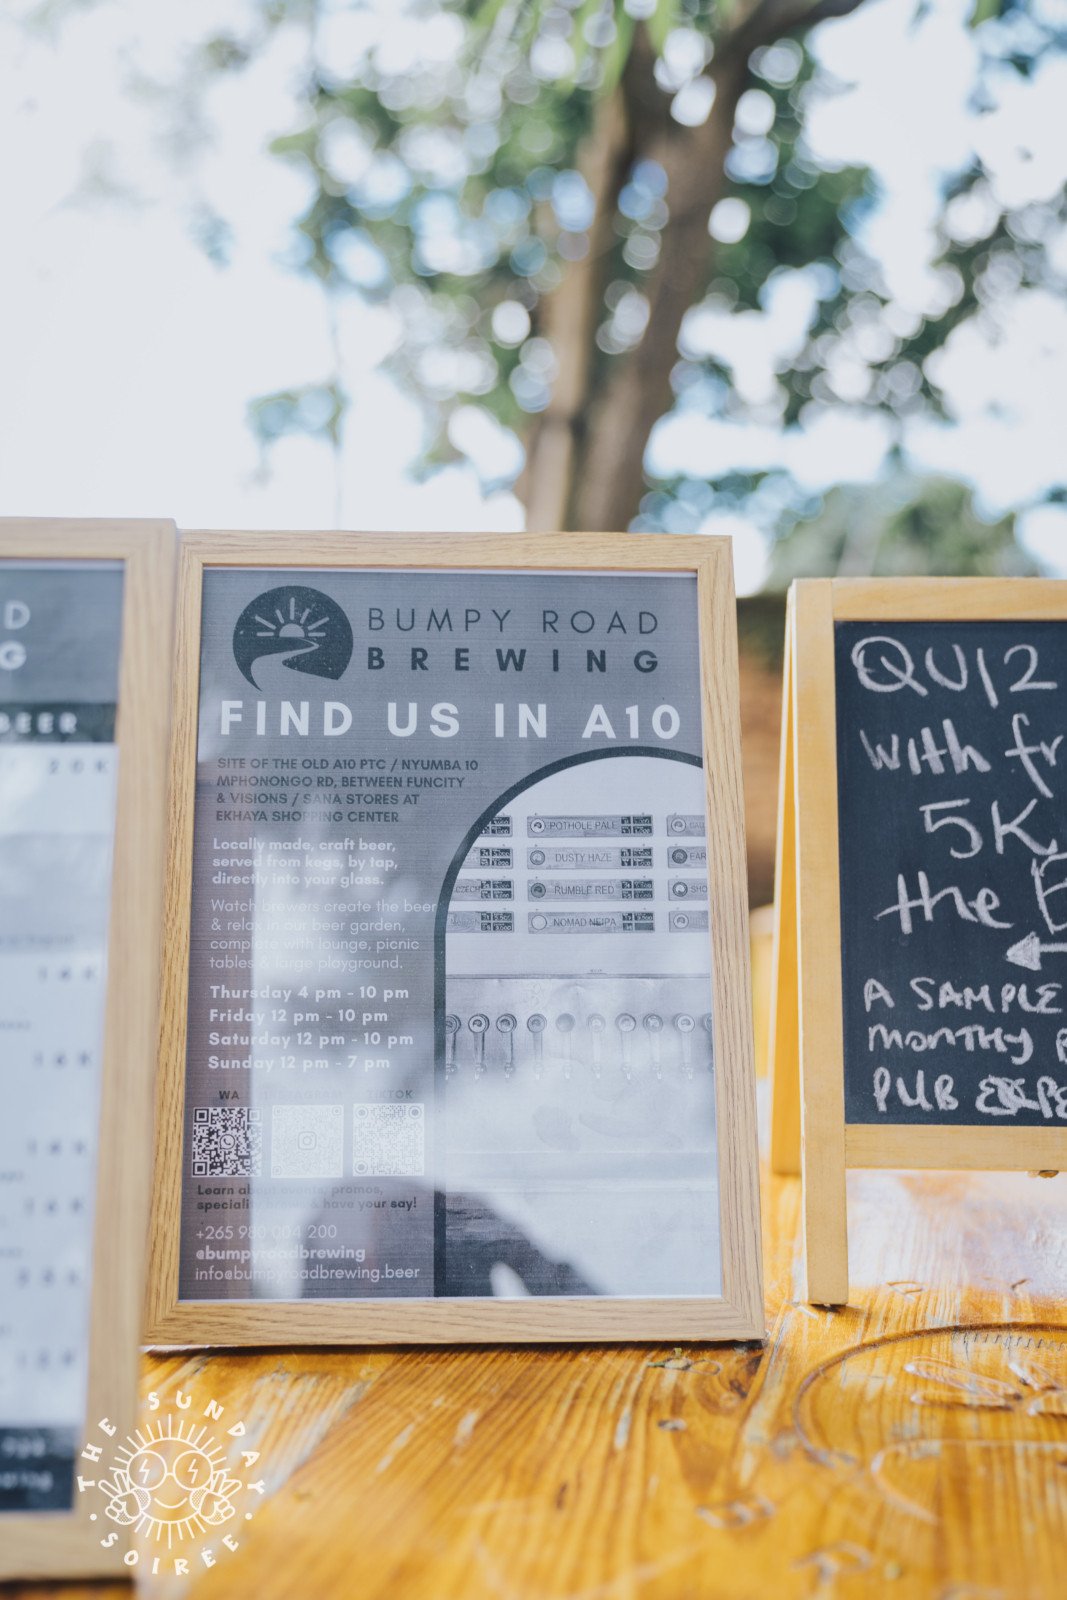 D
G
BEER
BUMPY ROAD
BREWING
FIND US IN A10
SITE OF THE OLD A10 PTC / NYUMBA 10
MPHONONGO RD, BETWEEN FUNCITY
& VISIONS / SANA STORES AT
EKHAYA SHOPPING CENTER
Locally made, craft beer,
served from kegs, by tap,
directly into your glass.
Watch brewers create the beer
& relax in our beer garden,
complete with lounge, picnic
tables & large playground.
Thursday 4 pm - 10 pm
Friday 12 pm - 10 pm
Saturday 12 pm - 10 pm
Sunday 12 pm - 7 pm
WA INSTAGRAM TIKTOK
Learn about events, promos,
speciality brews & have your say!
+265 980 004 200
@bumpyroadbrewing
info@bumpyroadbrewing.beer
POTHOLE PALE
DUSTY HAZE
CZECH RUMBLE RED SHO
NOMAD NEIPA
QUIZ
with fr
5K
the
←
A SAMPLE
MONTHY
PUB
THE SUNDAY
SOIRÉE